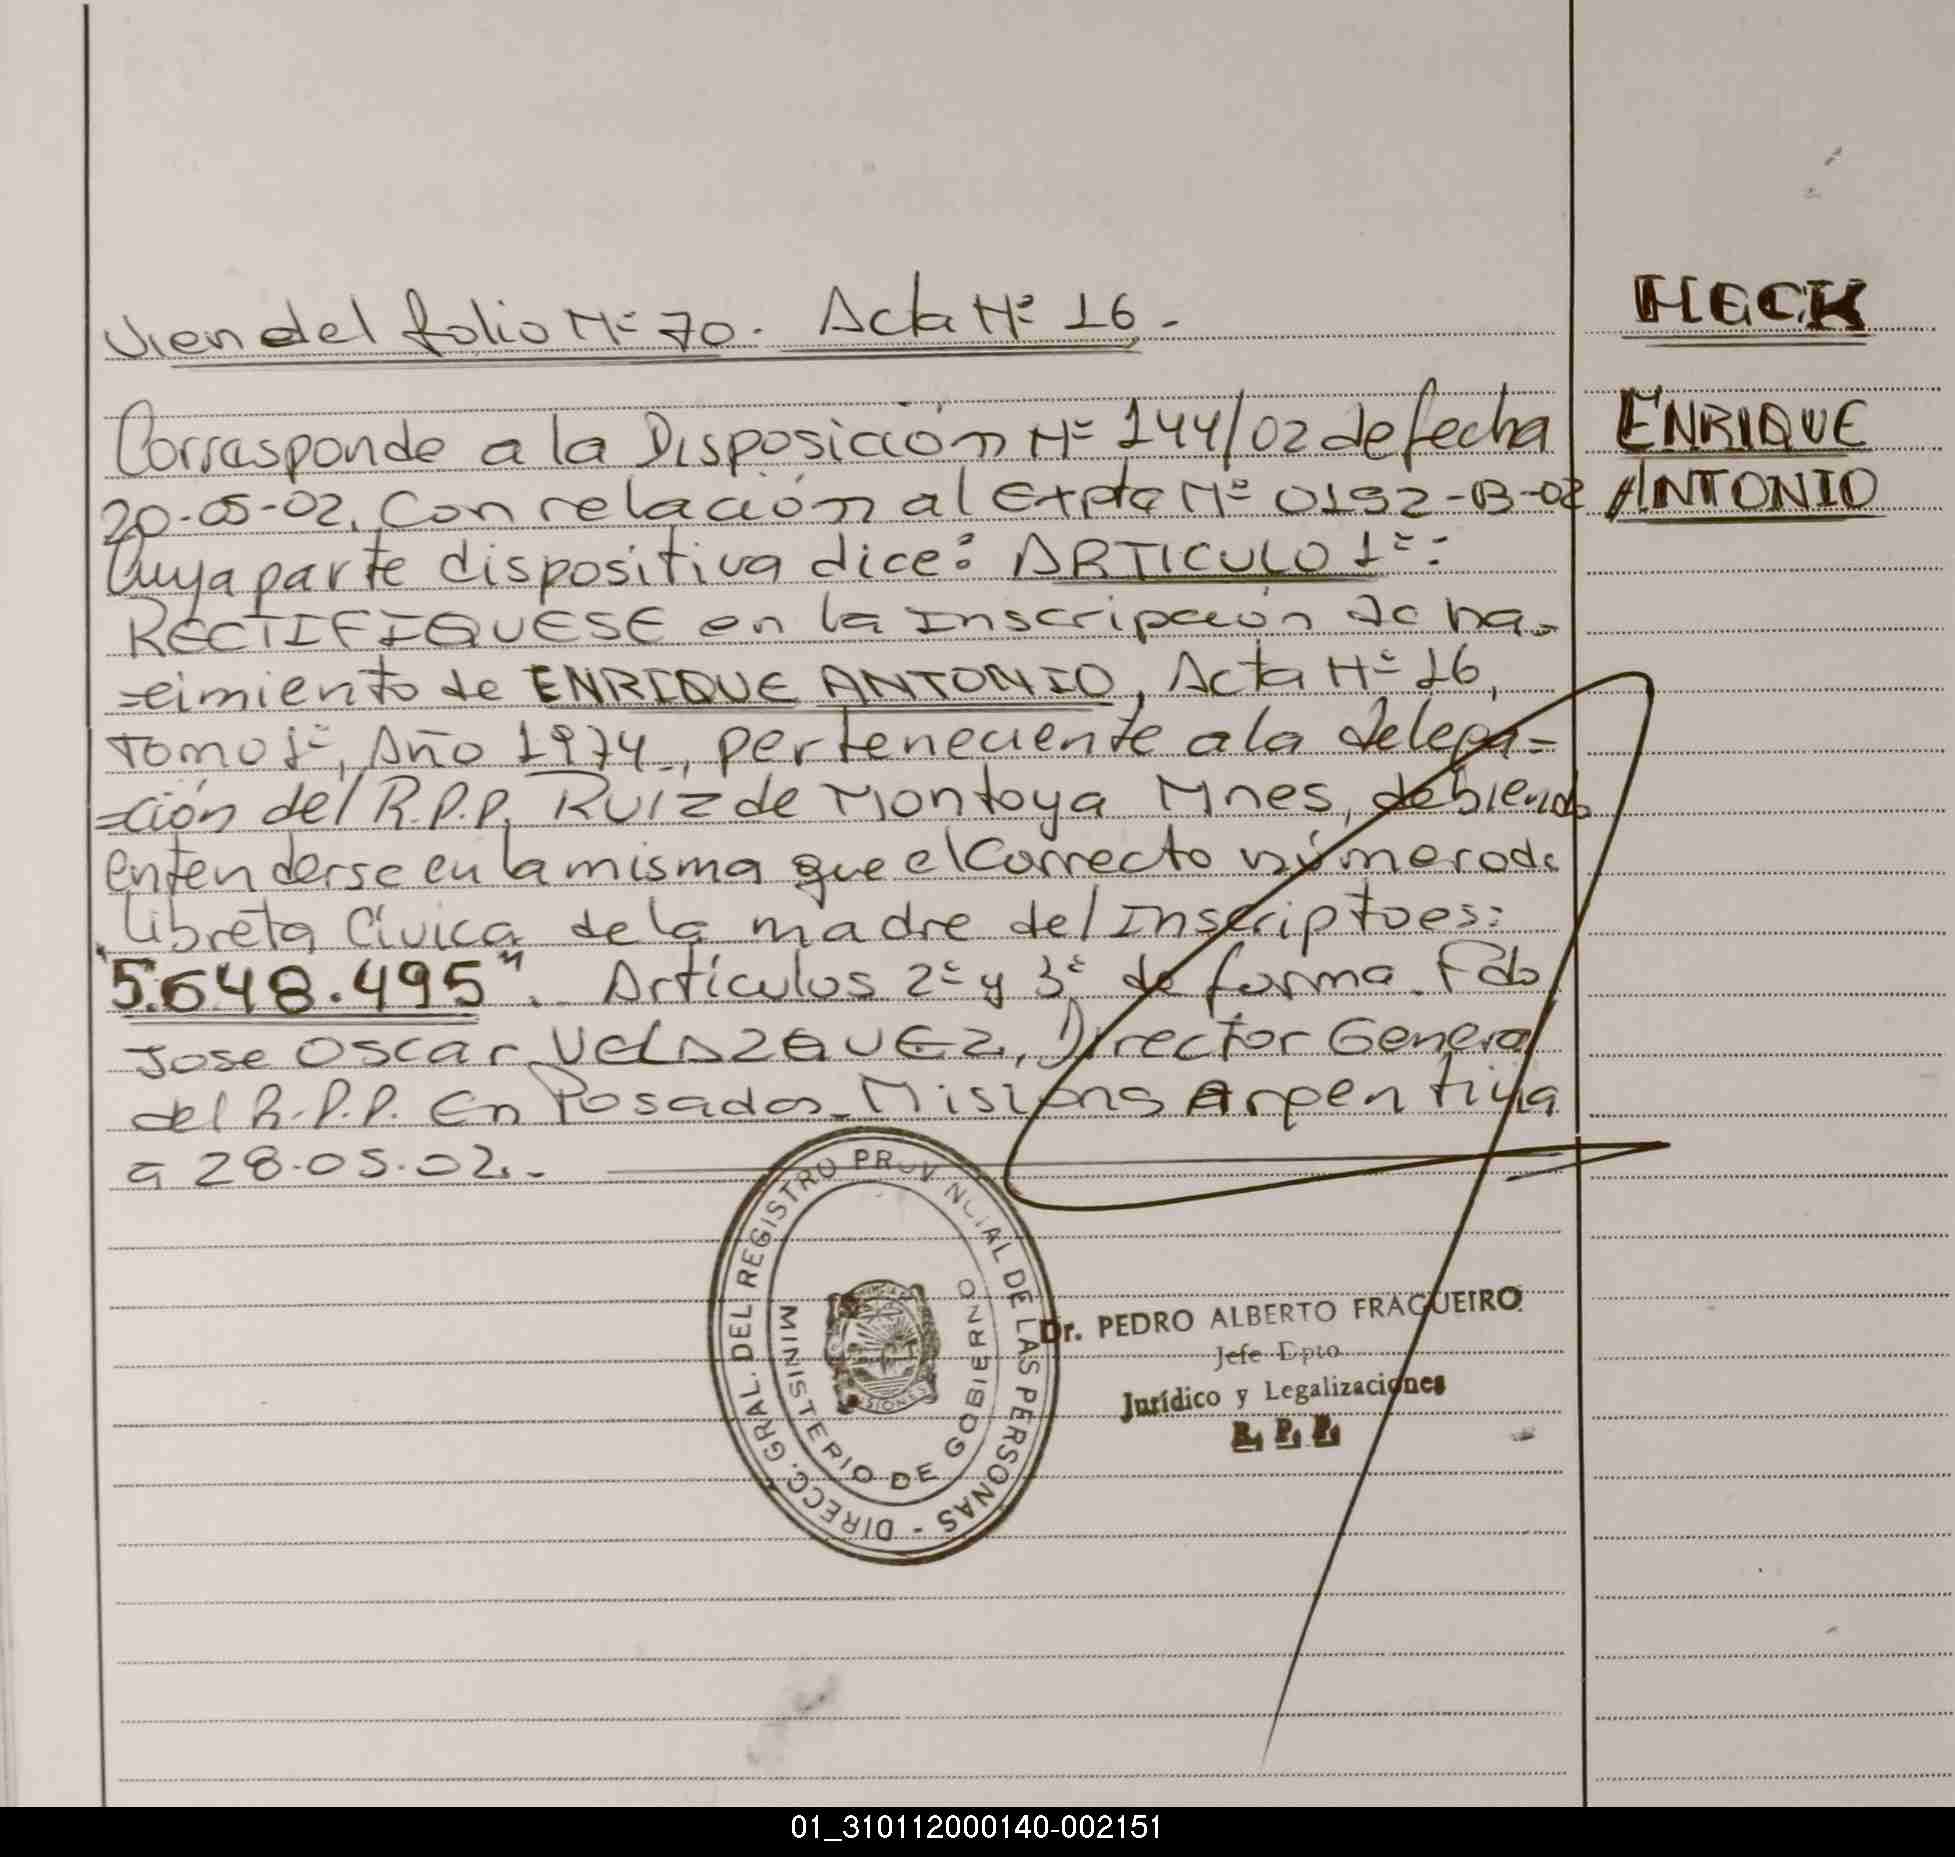 vien del folio Nº 70. Acta Nº 16.-
HECK
Corresponde a la Disposición Nº 144/02 de fecha
ENRIQUE
20-05-02. Con relación al Expte Nº 0192-B-02
ANTONIO
Cuya parte dispositiva dice: ARTICULO 1º:
RECTIFIQUESE en la Inscripción de na=
=cimiento de ENRIQUE ANTONIO, Acta Nº 16,
Tomo 1º, Año 1974., perteneciente a la delega=
=ción del R.P.P. Ruiz de Montoya Mnes, debiendo
entenderse en la misma que el Correcto número de
Libreta Cívica de la madre del Inscripto es:
"5.648.495". Artículos 2º y 3º de forma. Fdo
Jose Oscar VELAZQUEZ, Director General
del R.P.P. En Posadas-Misions Argentina
a 28-05-02.-
DIRECC. GRAL. DEL REGISTRO PROVINCIAL DE LAS PERSONAS -
MINISTERIO DE GOBIERNO
Dr. PEDRO ALBERTO FRAGUEIRO
Jefe Dpto
Jurídico y Legalizaciones
R. P. P.
01_310112000140-002151